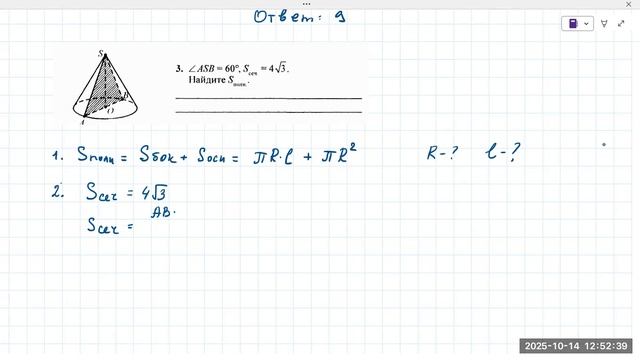 Ответ: 9
3. ∠ASB = 60°, Sсеч = 4√3.
Найдите Sполн.
S
B
O
A
1. Sполн = Sбок + Sосн = πR·l + πR² R-? l-?
2. Sсеч = 4√3
AB·
Sсеч =
2025-10-14 12:52:39